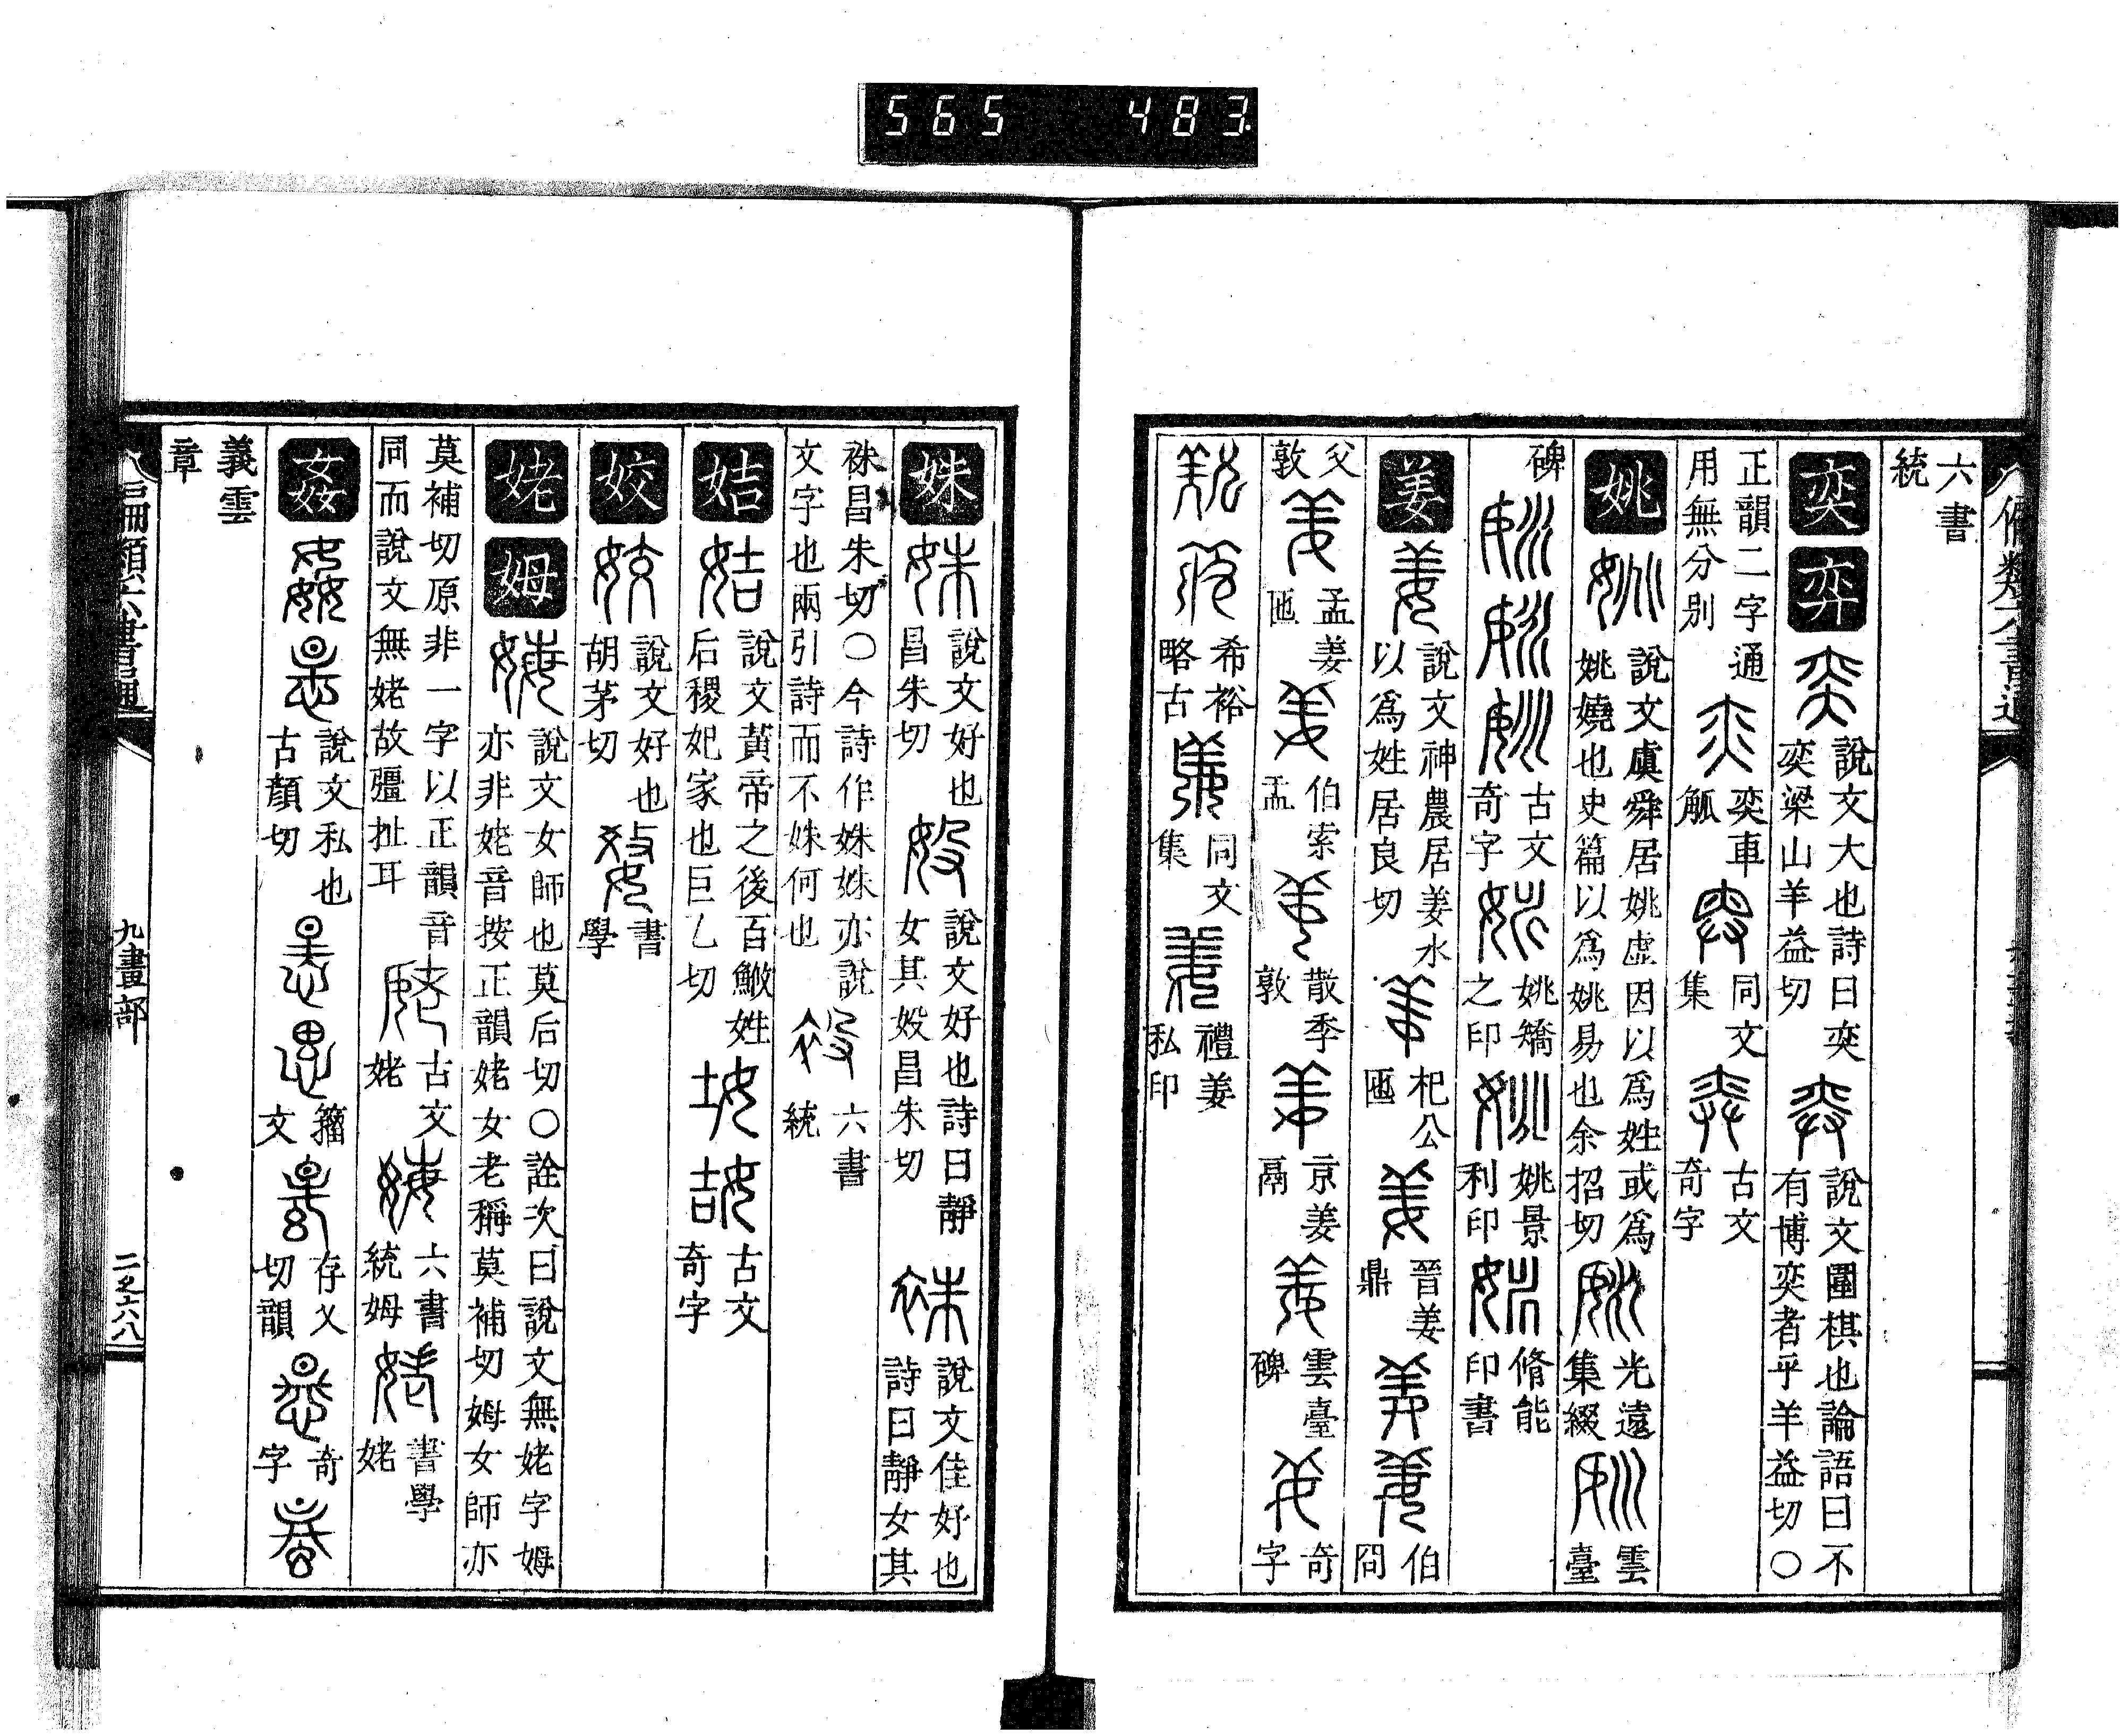 565 483
六書
統
奕 弈 說文大也詩曰奕
奕梁山羊益切 說文圍棋也論語曰不
有博奕者乎羊益切〇
正韻二字通
用無分別 奕車
觚 同文
集 古文
奇字
姚 說文虞舜居姚虛因以爲姓或爲
姚嬈也史篇以爲姚易也余招切 光遠
集綴 雲
臺
碑 古文
奇字 姚矯
之印 姚景
利印 脩能
印書
姜 說文神農居姜水
以爲姓居良切 杞公
匜 晉姜
鼎 伯
冏
父
敦 孟姜
匜 伯索
盂 散季
敦 京姜
鬲 雲臺
碑 奇
字
希裕
略古 同文
集 禮姜
私印
姝 說文好也
昌朱切 說文好也詩曰靜
女其㚼昌朱切 說文佳好也
詩曰靜女其
袾昌朱切〇今詩作姝姝亦說
文字也兩引詩而不姝何也 六書
統
姞 說文黃帝之後百䱷姓
后稷妃家也巨乙切 古文
奇字
姣 說文好也
胡茅切 書
學
姥 姆 說文女師也莫后切〇詮次曰說文無姥字姆
亦非姥音按正韻姥女老稱莫補切姆女師亦
莫補切原非一字以正韻音
同而說文無姥故彊扯耳 古文
姥 六書
統姆 書學
姥
姦 說文私也
古顏切 籀
文 存乂
切韻 奇
字
義雲
章
九畫部
二之六八